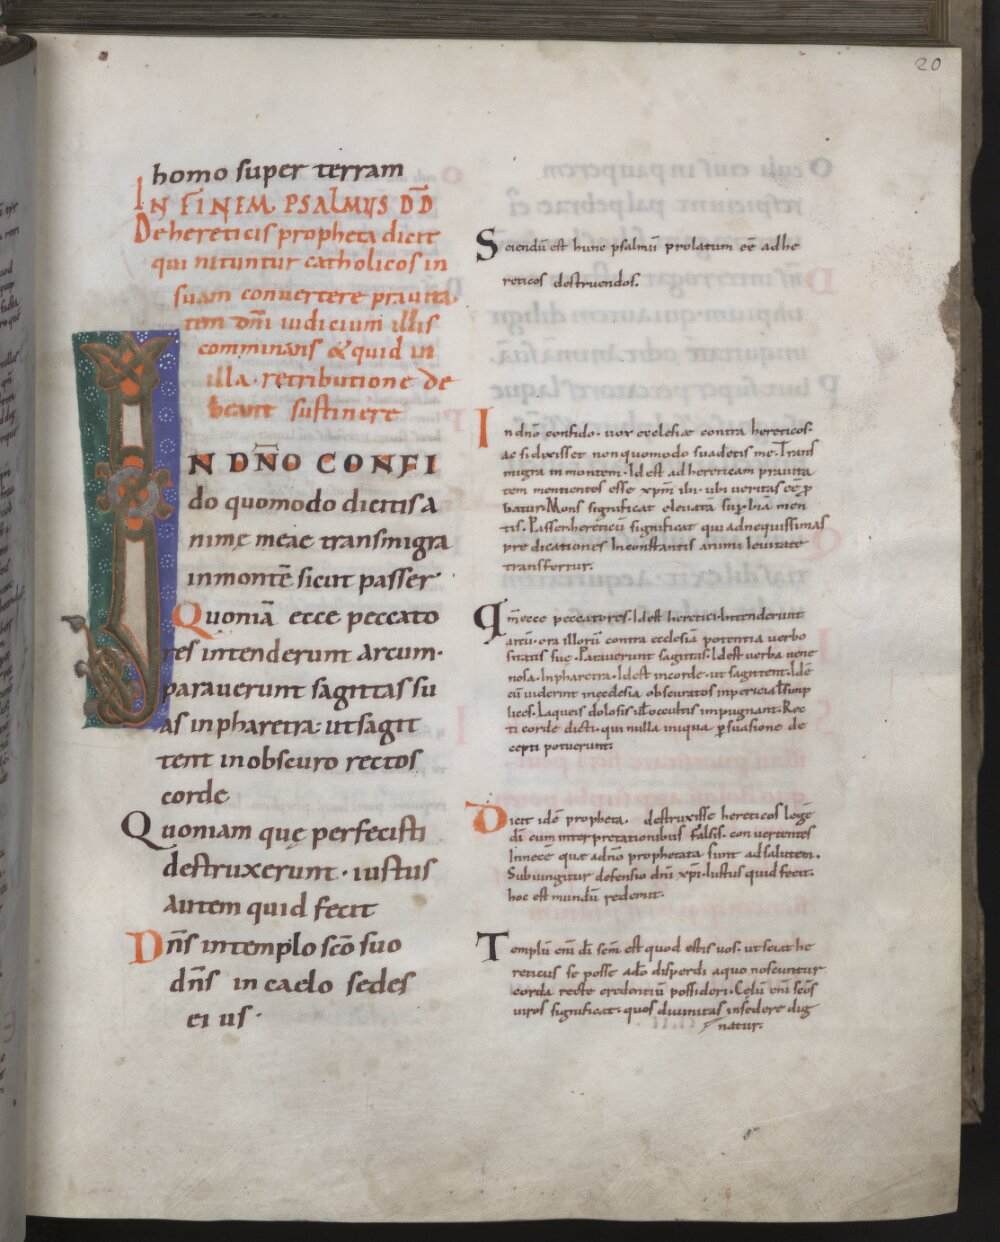 20
homo super terram
IN FINEM PSALMUS DD̄
De hereticis propheta dicit
qui nituntur catholicos in
suam convertere pravita
tem dn̄i iudicium illis
comminans & quid in
illa retributione de
beant sustinere
IN DN̄O CONFI
do quomodo dicitis a
nimę meae transmigra
in montē sicut passer
Quoniā ecce peccato
res intenderunt arcum·
paraverunt sagittas su
as in pharetra· ut sagit
tent in obscuro rectos
corde
Quoniam quę perfecisti
destruxerunt · iustus
autem quid fecit
Dn̄s in templo sc̄o suo
dn̄s in caelo sedes
eius·
Sciendū est hunc psalmū prolatum eē ad he
reticos destruendos.
In dn̄o confido· vox ecclesiæ contra hereticos·
ac si dixisset non quomodo suadetis me· Trans
migra in montem· Id est ad hereticam pravita
tem mentientes esse xp̄m ibi· ubi veritas eē p̱
batur· Mons significat elevata sup̱biā men
tis· Passer hereticū significat qui ad nequissimas
predicationes inconstantis animi levitate
transfertur.
Qm̄ ecce peccatores· Id est heretici· Intenderunt
arcū· ora illorū contra ecclesiā potentia verbo
sitatis suę· Paraverunt sagittas· Id est verba vene
nosa· In pharetra· Id est in corde· ut sagittent· Idē
cū viderint in ecclesia obscuratos impericia simp
lices· Laqueis dolosis vel occultis impugnant· Rec
ti corde dicti· qui nulla iniqua p̱suasione de
cepti potuerunt·
Dicit idē propheta· destruxisse hereticos legē
di cum interpretationibus falsis· convertentes
Innecē quæ ad n̄o prophetata sunt ad salutem·
Subiungitur defensio dn̄i xp̄i· Iustus quid fecit·
hoc est mundū redemit·
Templū enī dī sc̄m est quod estis vos· ut sciat he
reticus se posse a dō disperdi a quo noscuntur
corda recte credentiū possideri· Cęlū enī sc̄os
viros significat· quos divinitas insedere dig
natur·